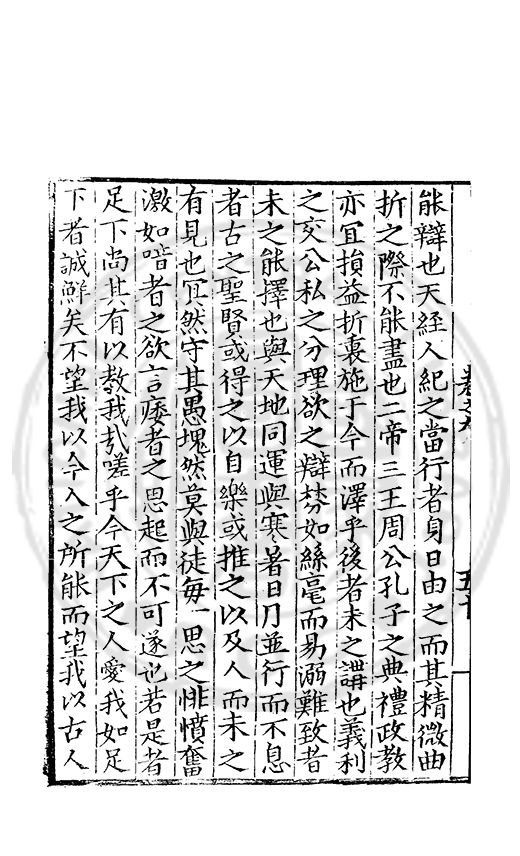 能辯也天經人紀之當行者身日由之而其精微曲
折之際不能盡也二帝三王周公孔子之典禮政教
亦宜損益折衷施于今而澤乎後者未之講也義利
之交公私之分理欲之辯棼如絲毫而易溺難致者
未之能擇也與天地同運與寒暑日月並行而不息
者古之聖賢或得之以自樂或推之以及人而未之
有見也冥然守其愚塊然莫與徒每一思之悱憤奮
激如喑者之欲言痿者之思起而不可遂也若是者
足下尚其有以教我哉嗟乎今天下之人愛我如足
下者誠鮮矣不望我以今人之所能而望我以古人